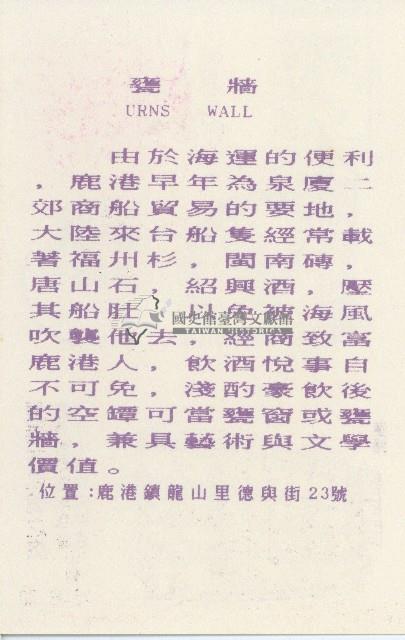 甕　牆
URNS WALL
由於海運的便利
，鹿港早年為泉廈二
郊商船貿易的要地，
大陸來台船隻經常載
著福州杉，閩南磚，
唐山石，紹興酒，壓
其船肚，以免被海風
吹襲他去，經商致富
鹿港人，飲酒悅事自
不可免，淺酌豪飲後
的空罈可當甕窗或甕
牆，兼具藝術與文學
價值。
位置:鹿港鎮龍山里德興街23號
國史館臺灣文獻館
TAIWAN HISTORICA